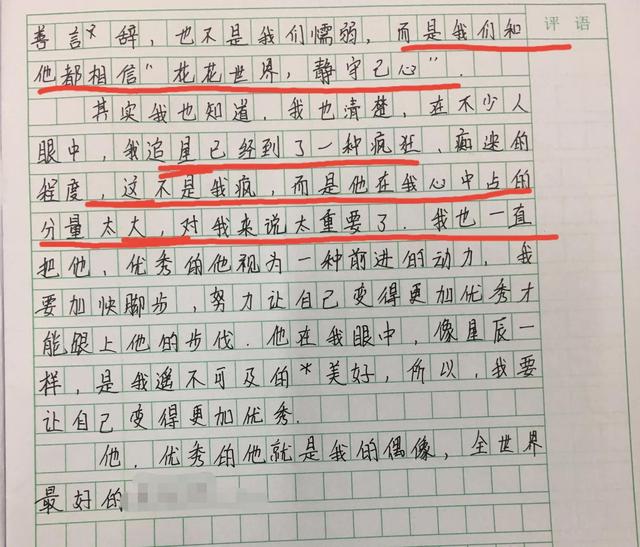 评语
善言文辞，也不是我们懦弱，而是我们和
他都相信"花花世界，静守己心".
其实我也知道，我也清楚，在不少人
眼中，我追星已经到了一种疯狂、痴迷的
程度，这不是我疯，而是他在我心中占的
分量太大，对我来说太重要了．我也一直
把他，优秀的他视为一种前进的动力．我
要加快脚步，努力让自己变得更加优秀才
能跟上他的步伐．他在我眼中，像星辰一
样，是我遥不可及的*美好，所以，我要
让自己变得更加优秀．
他．优秀的他就是我的偶像，全世界
最好的